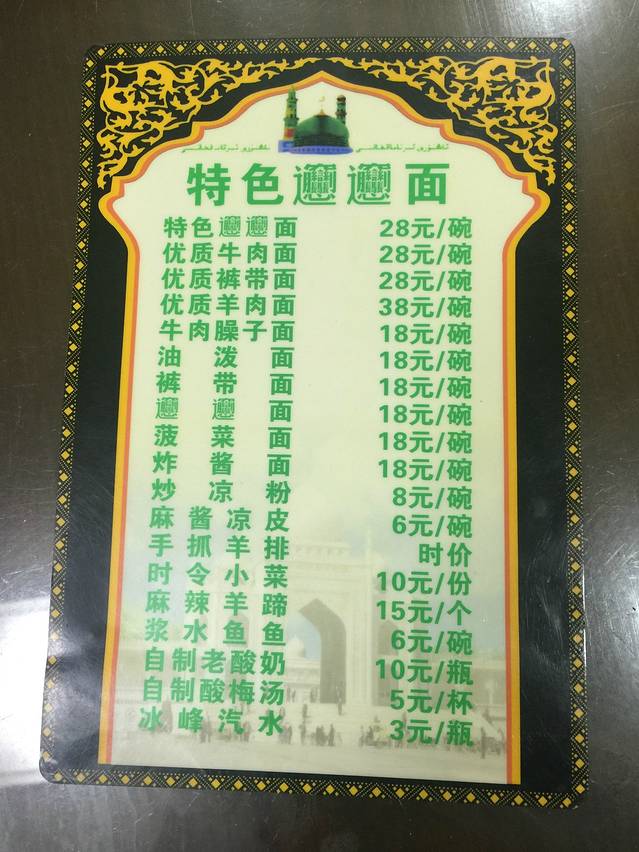 特色𰻞𰻞面
特色𰻞𰻞面 28元/碗
优质牛肉面 28元/碗
优质裤带面 28元/碗
优质羊肉面 38元/碗
牛肉臊子面 18元/碗
油泼面 18元/碗
裤带面 18元/碗
𰻞𰻞面 18元/碗
菠菜面 18元/碗
炸酱面 18元/碗
炒凉粉 8元/碗
麻酱凉皮 6元/碗
手抓羊排 时价
时令小菜 10元/份
麻辣羊蹄 15元/个
浆水鱼鱼 6元/碗
自制老酸奶 10元/瓶
自制酸梅汤 5元/杯
冰峰汽水 3元/瓶